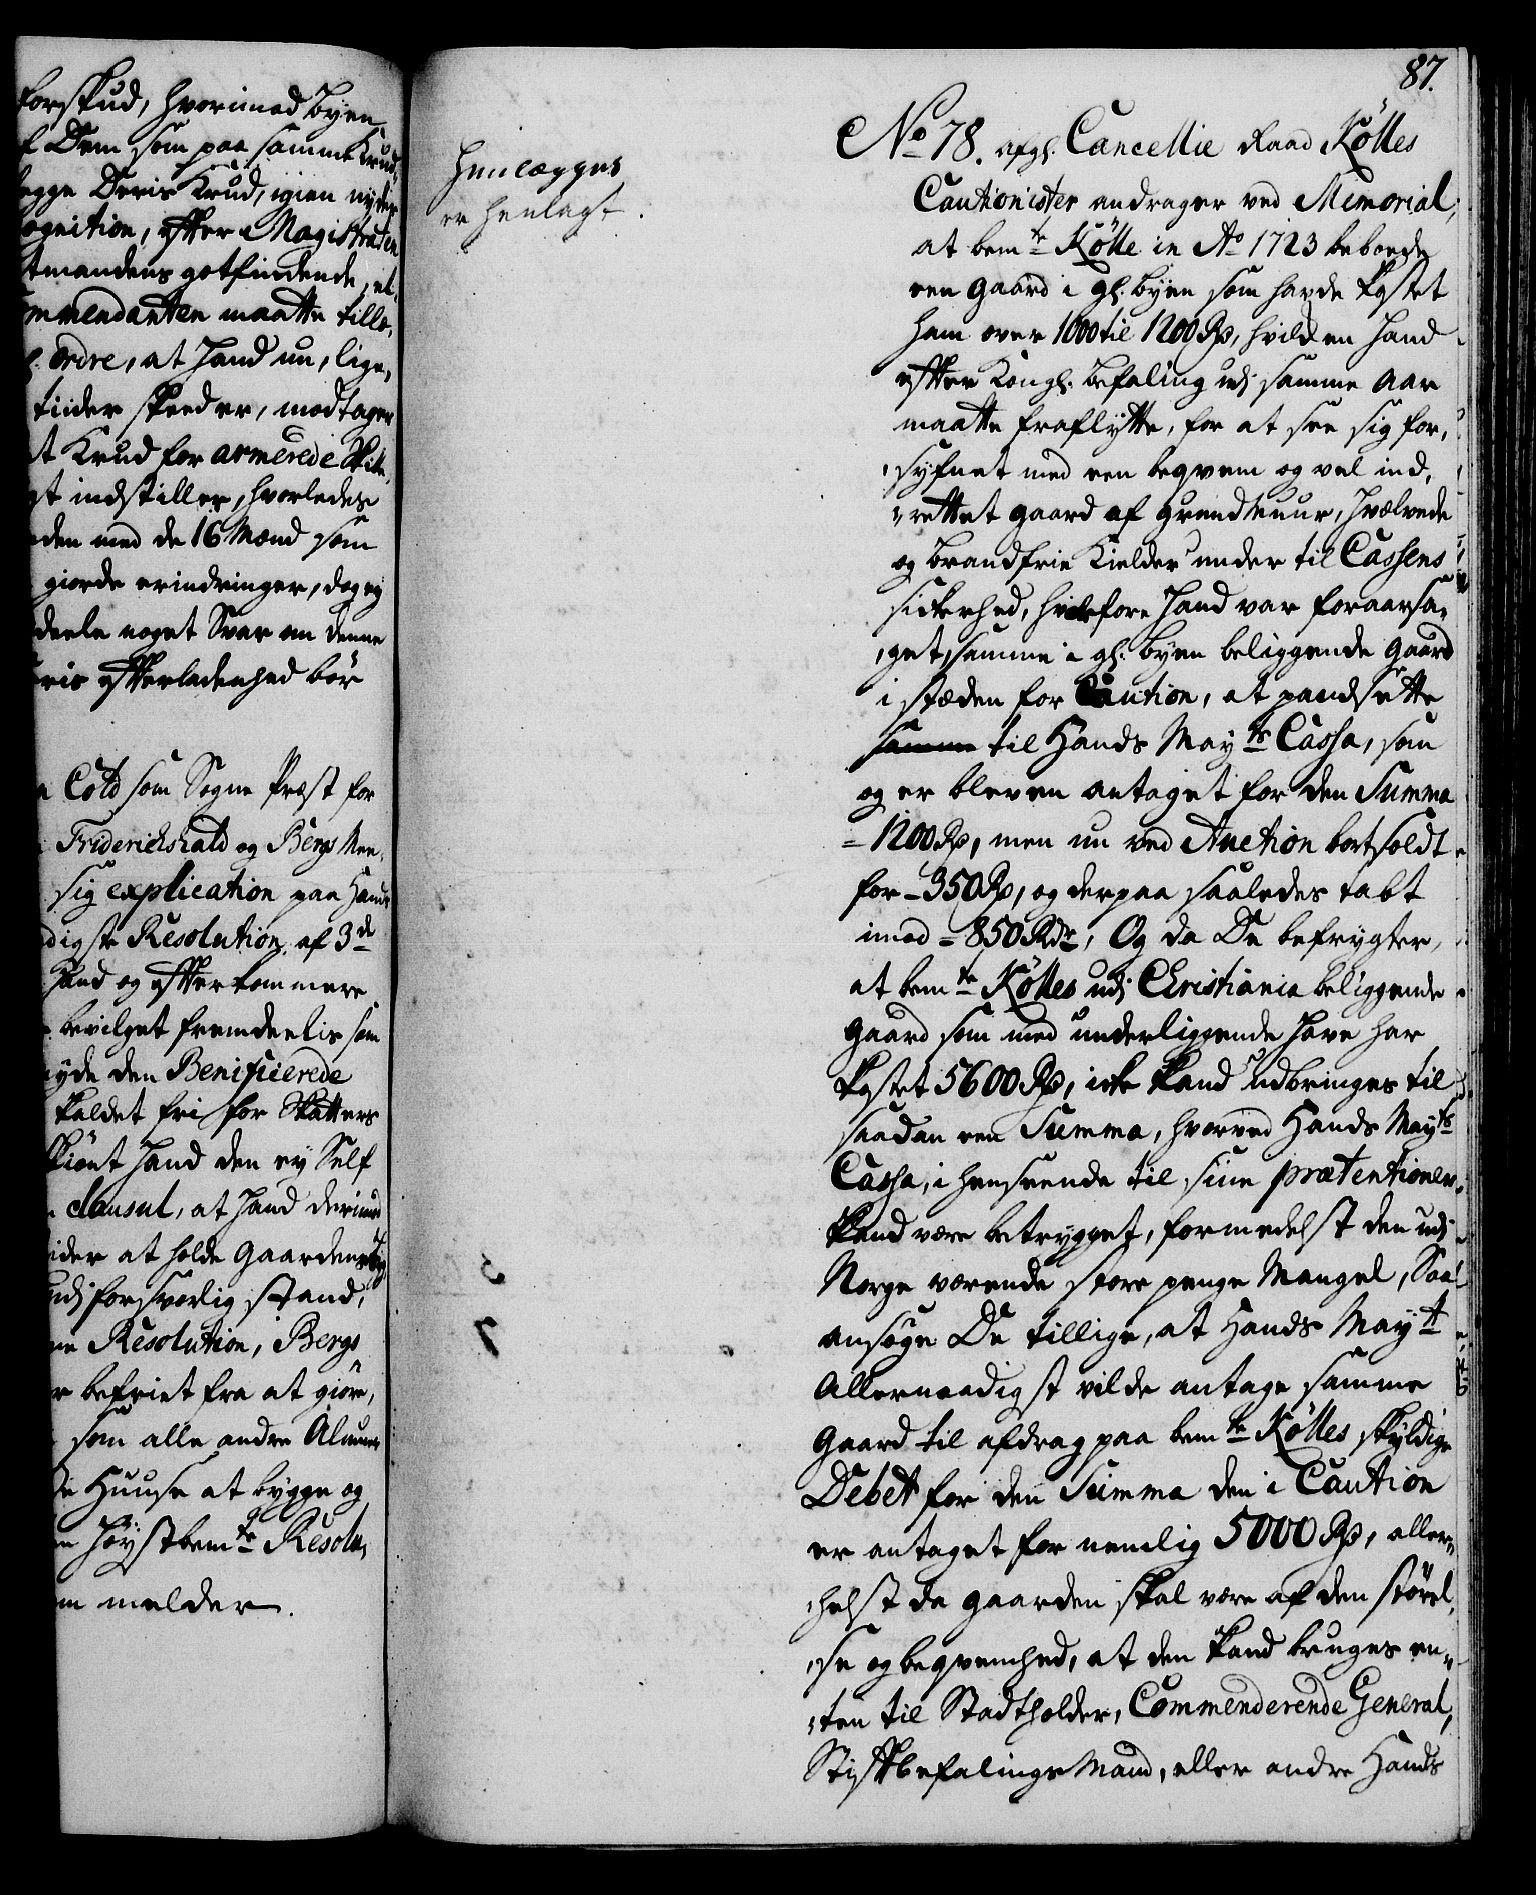 forskud, hvorimod Byen
Dem som paa samme Krud
egge Deris Krud, igien nyder
ognition, efter Magistraten
tmandens gotfindende, et
mmendanten maatte tillæ,
ordre, at hand nu, lige,
tinder skeeder, modtager
t Krud for armerede Skibe
t indstiller, hvorledes
den med de 16 Mænd som
giorde erindringer, dog ej
deele noget Svar om denne
ris efterladenhed bör
Cold som Sogne Præst for
Friderichshald og Bergs Me,
sig explication paa Hands
digste Resolution af 3de
Hand og efterkommere
bevilget fremdeelis som
nyde den Benificerede
kaldet fri for Skatters
skiönt hand den ey Self
clausul, at hand derimod
ider at holde Gaardens
udj forsvarlig stand,
ne Resolution, Bergs
r befriet fra at giöre,
som alle andre Almue
de Huuse at bygge og
höystbemte Resolu,
m melder.
87.
Henlægges
er henlagt.
No 78. afg: Cancellie Raad Kölles
Cautionister andrager ved Memorial,
at bemte Kölle in Ao 1723 beboede
een Gaard i gl: byen som havde kostet
ham over 1000 til 1200 Rd, hvilken hand
efter Kongl: befaling udj samme Aar
maatte fraflytte, for at see sig for,
,syfnet med een beqvem og vel ind,
,rettet gaard af grundmuur, hvælvede
og brandfrie Kielder under til Cassens
sickerhed, hvorfore hand var foraarsa,
,get, samme i gl: byen beliggende Gaard
i stæden for Caution, at pandsette
samme til Hands Mayts Cassa, som
og er bleven antaget for den Summa
- 1200 Rd, men nu ved Auction bortsoldt
for - 350 Rd, og derpaa saaledes tabt
imod - 850 Rdr, Og da De befrygter,
at bemte Kölles udj Christiania beliggende
Gaard som med underliggende Have har
kostet 5600 Rd, icke kand udbringes til
saadan een Summa, hvorved Hands Mayts
Cassa, i henseende til sine prætentioner
kand være betrygget, formedelst den udj
Norge værende store penge Mangel, Saa
ansöge De tillige, at Hands Mayt
Allernaadigst vilde antage samme
Gaard til afdrag paa bemte Kölles skyldige
Debet for den Summa den i Caution
er antaget for nemlig 5000 Rd, aller,,
,helst da gaarden skal være af den störel,
,se og beqvemhed, at den kand bruges en,,
,ten til Stadtholder, Commenderende General,
Stiftbefalings Mand, eller andre Hands